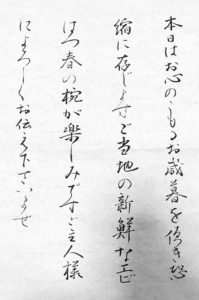 本日はお心のこもるお歳暮を頂き恐
縮に存じますご当地の新鮮なエビ
はつ春の椀が楽しみですご主人様
によろしくお伝え下さいませ